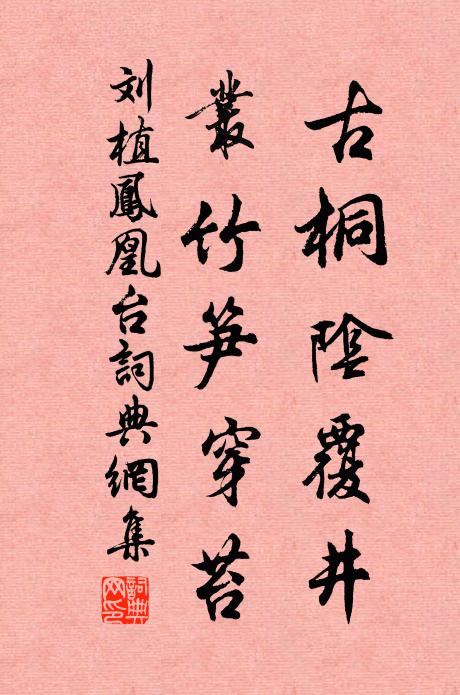 古桐陰覆井
叢竹笋穿苔
刘植鳳凰台詞典網集
詞典網印